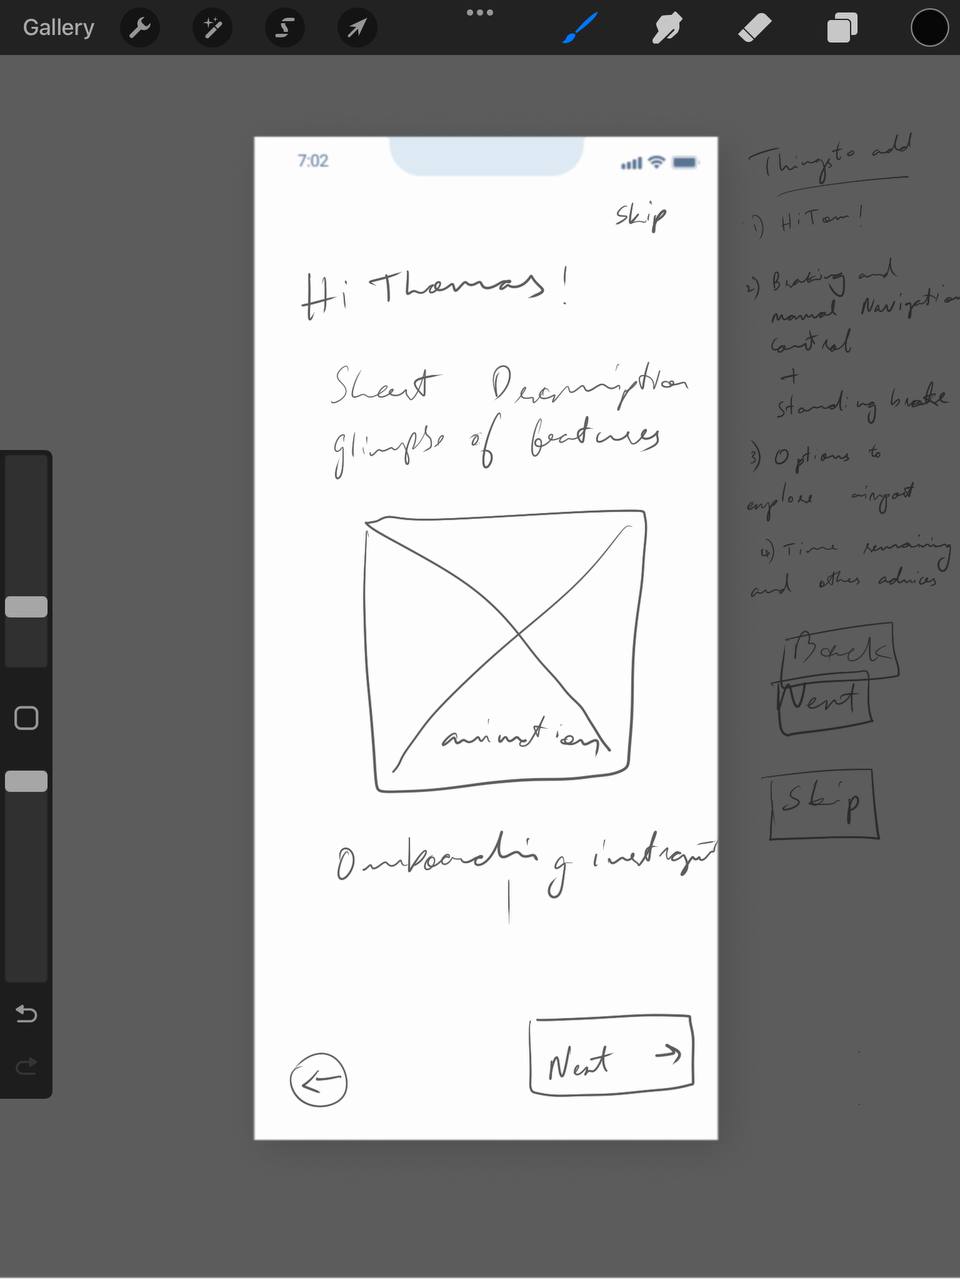 Gallery
7:02
Skip
Hi Thomas!
Short Description
glimpse of features
animation
Onboarding
Next →
←
Things to add
1) Hi Tom!
2) Braking and
manual Navigation
control
+
standing brake
3) Options to
explore airport
4) Time remaining
and other advices
Back
Next
Skip